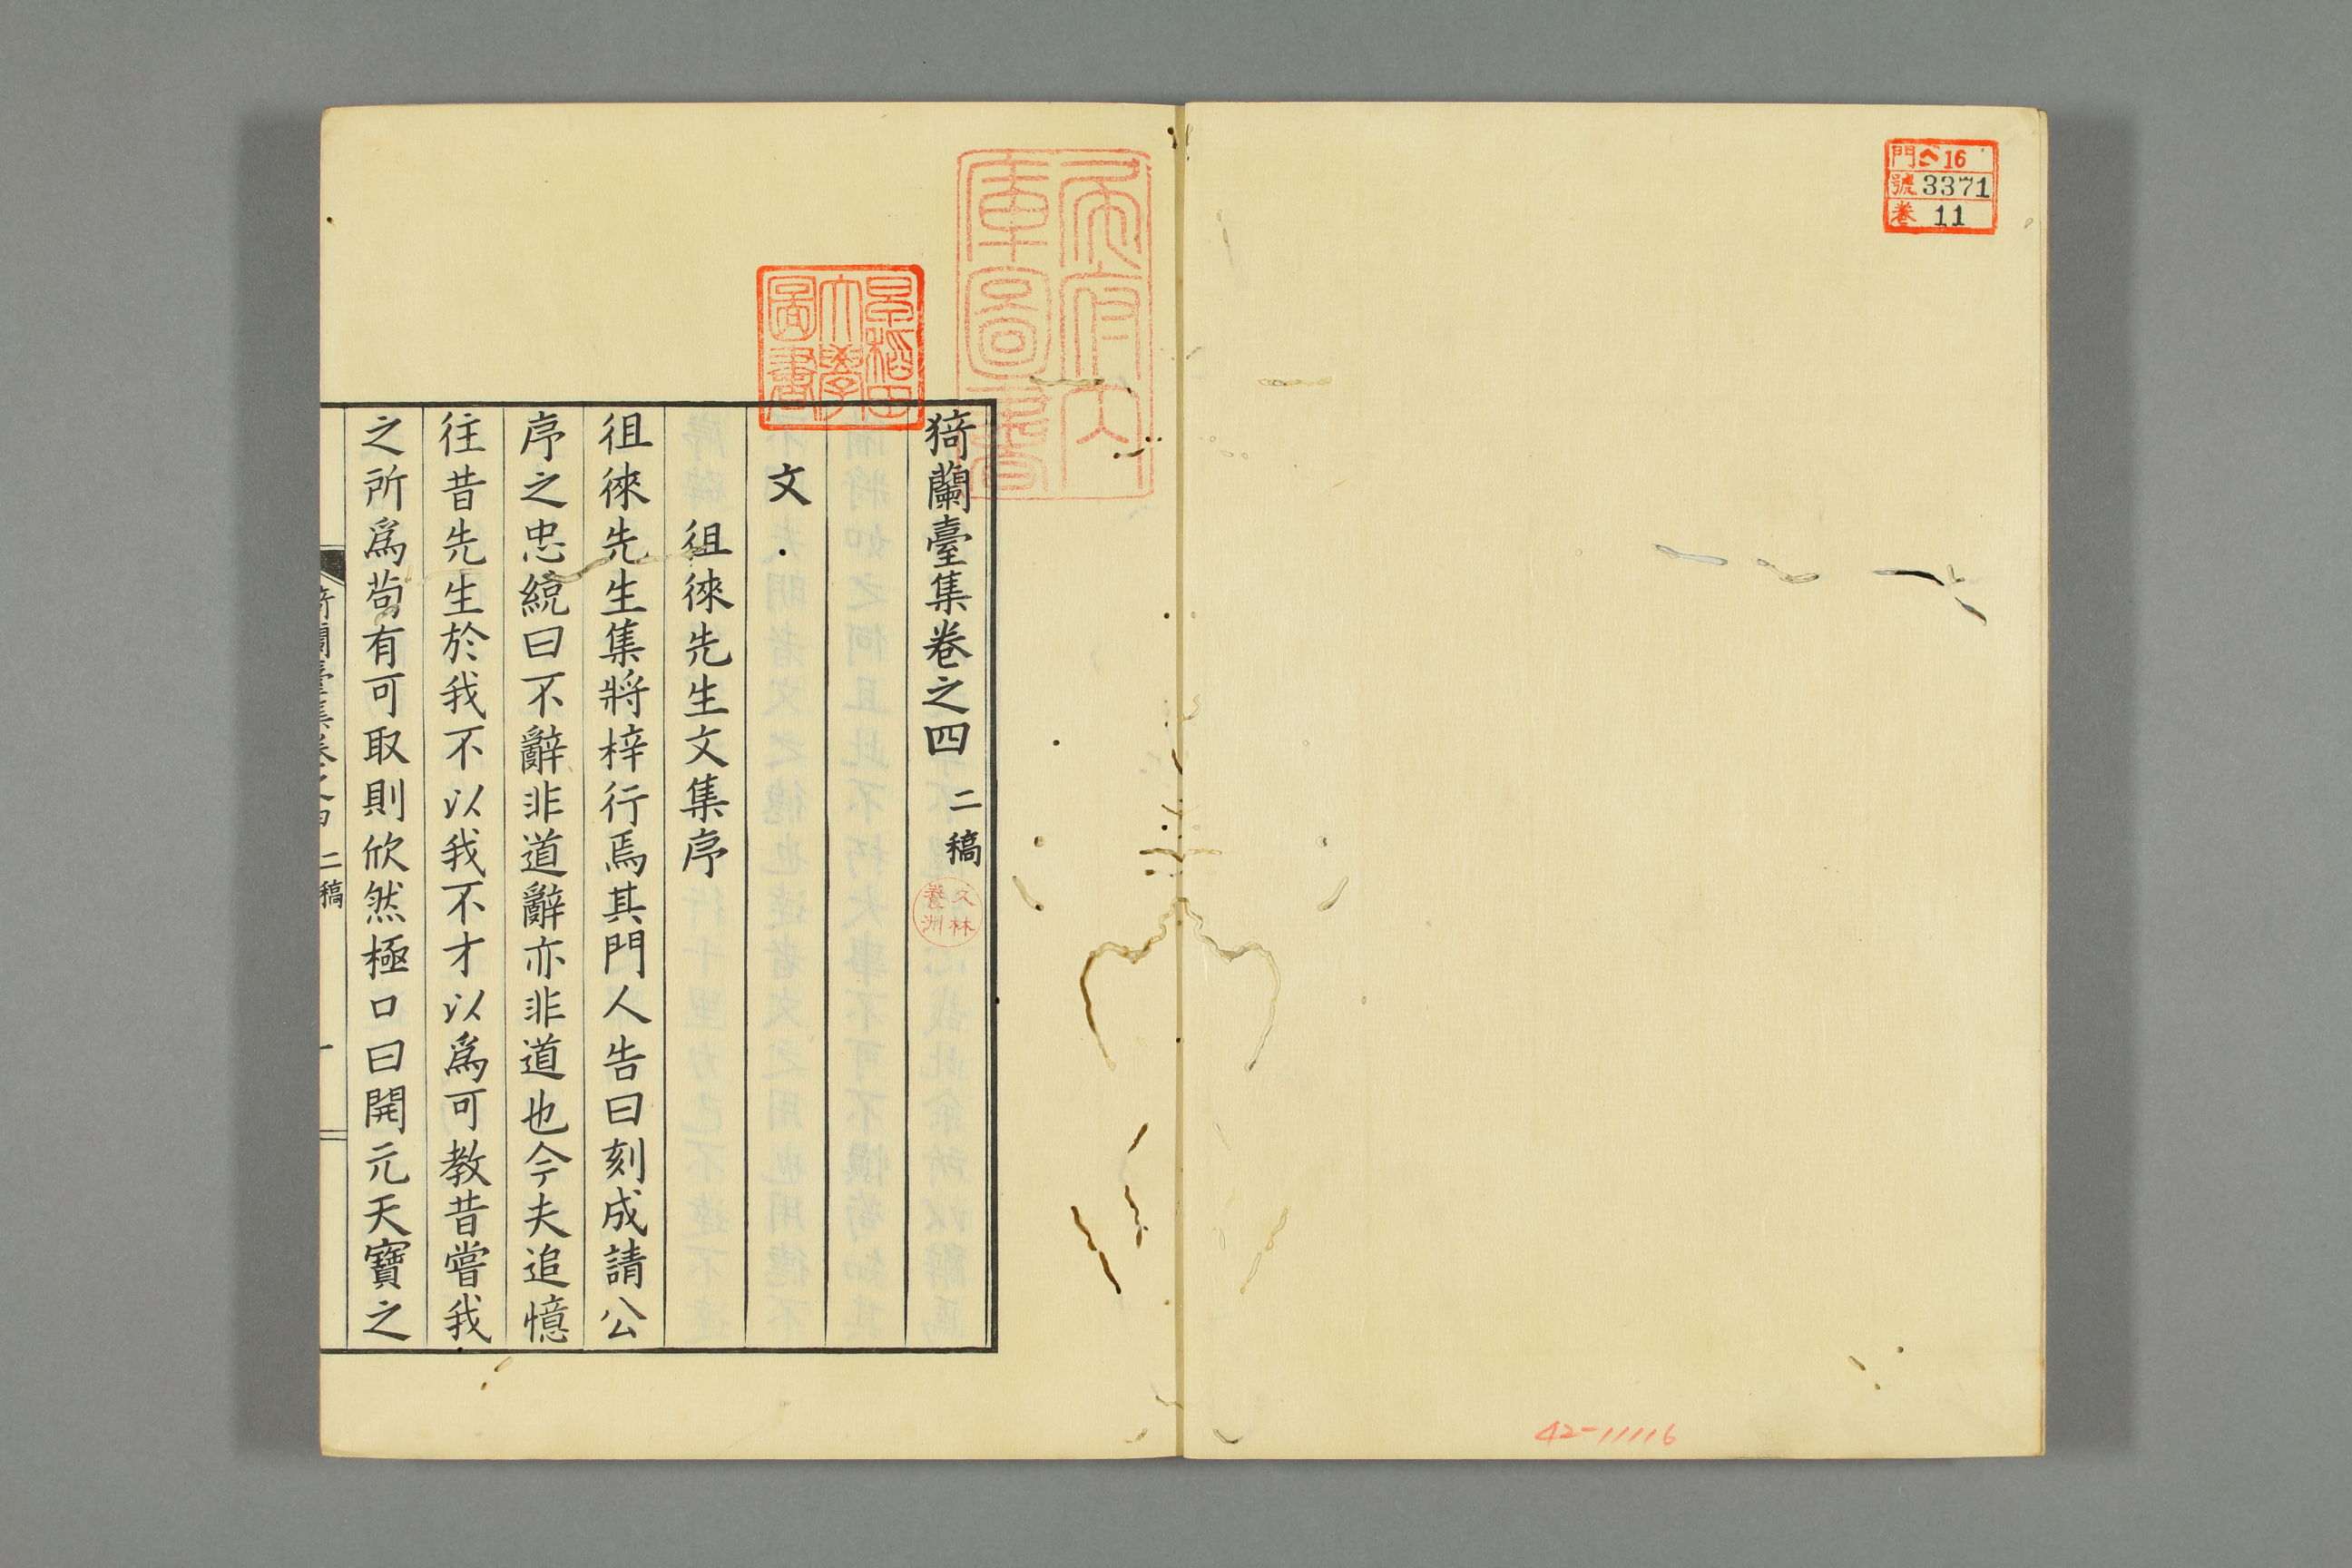 門 ヘ16
號 3371
卷 11
42-11116
猗蘭臺集卷之四 二稿
文
徂徠先生文集序
徂徠先生集將梓行焉其門人告曰刻成請公
序之忠統曰不辭非道辭亦非道也今夫追憶
往昔先生於我不以我不才以爲可教昔嘗我
之所爲苟有可取則欣然極口曰開元天寶之
猗蘭臺集卷之四 二稿
早稻田
大學
圖書
文林